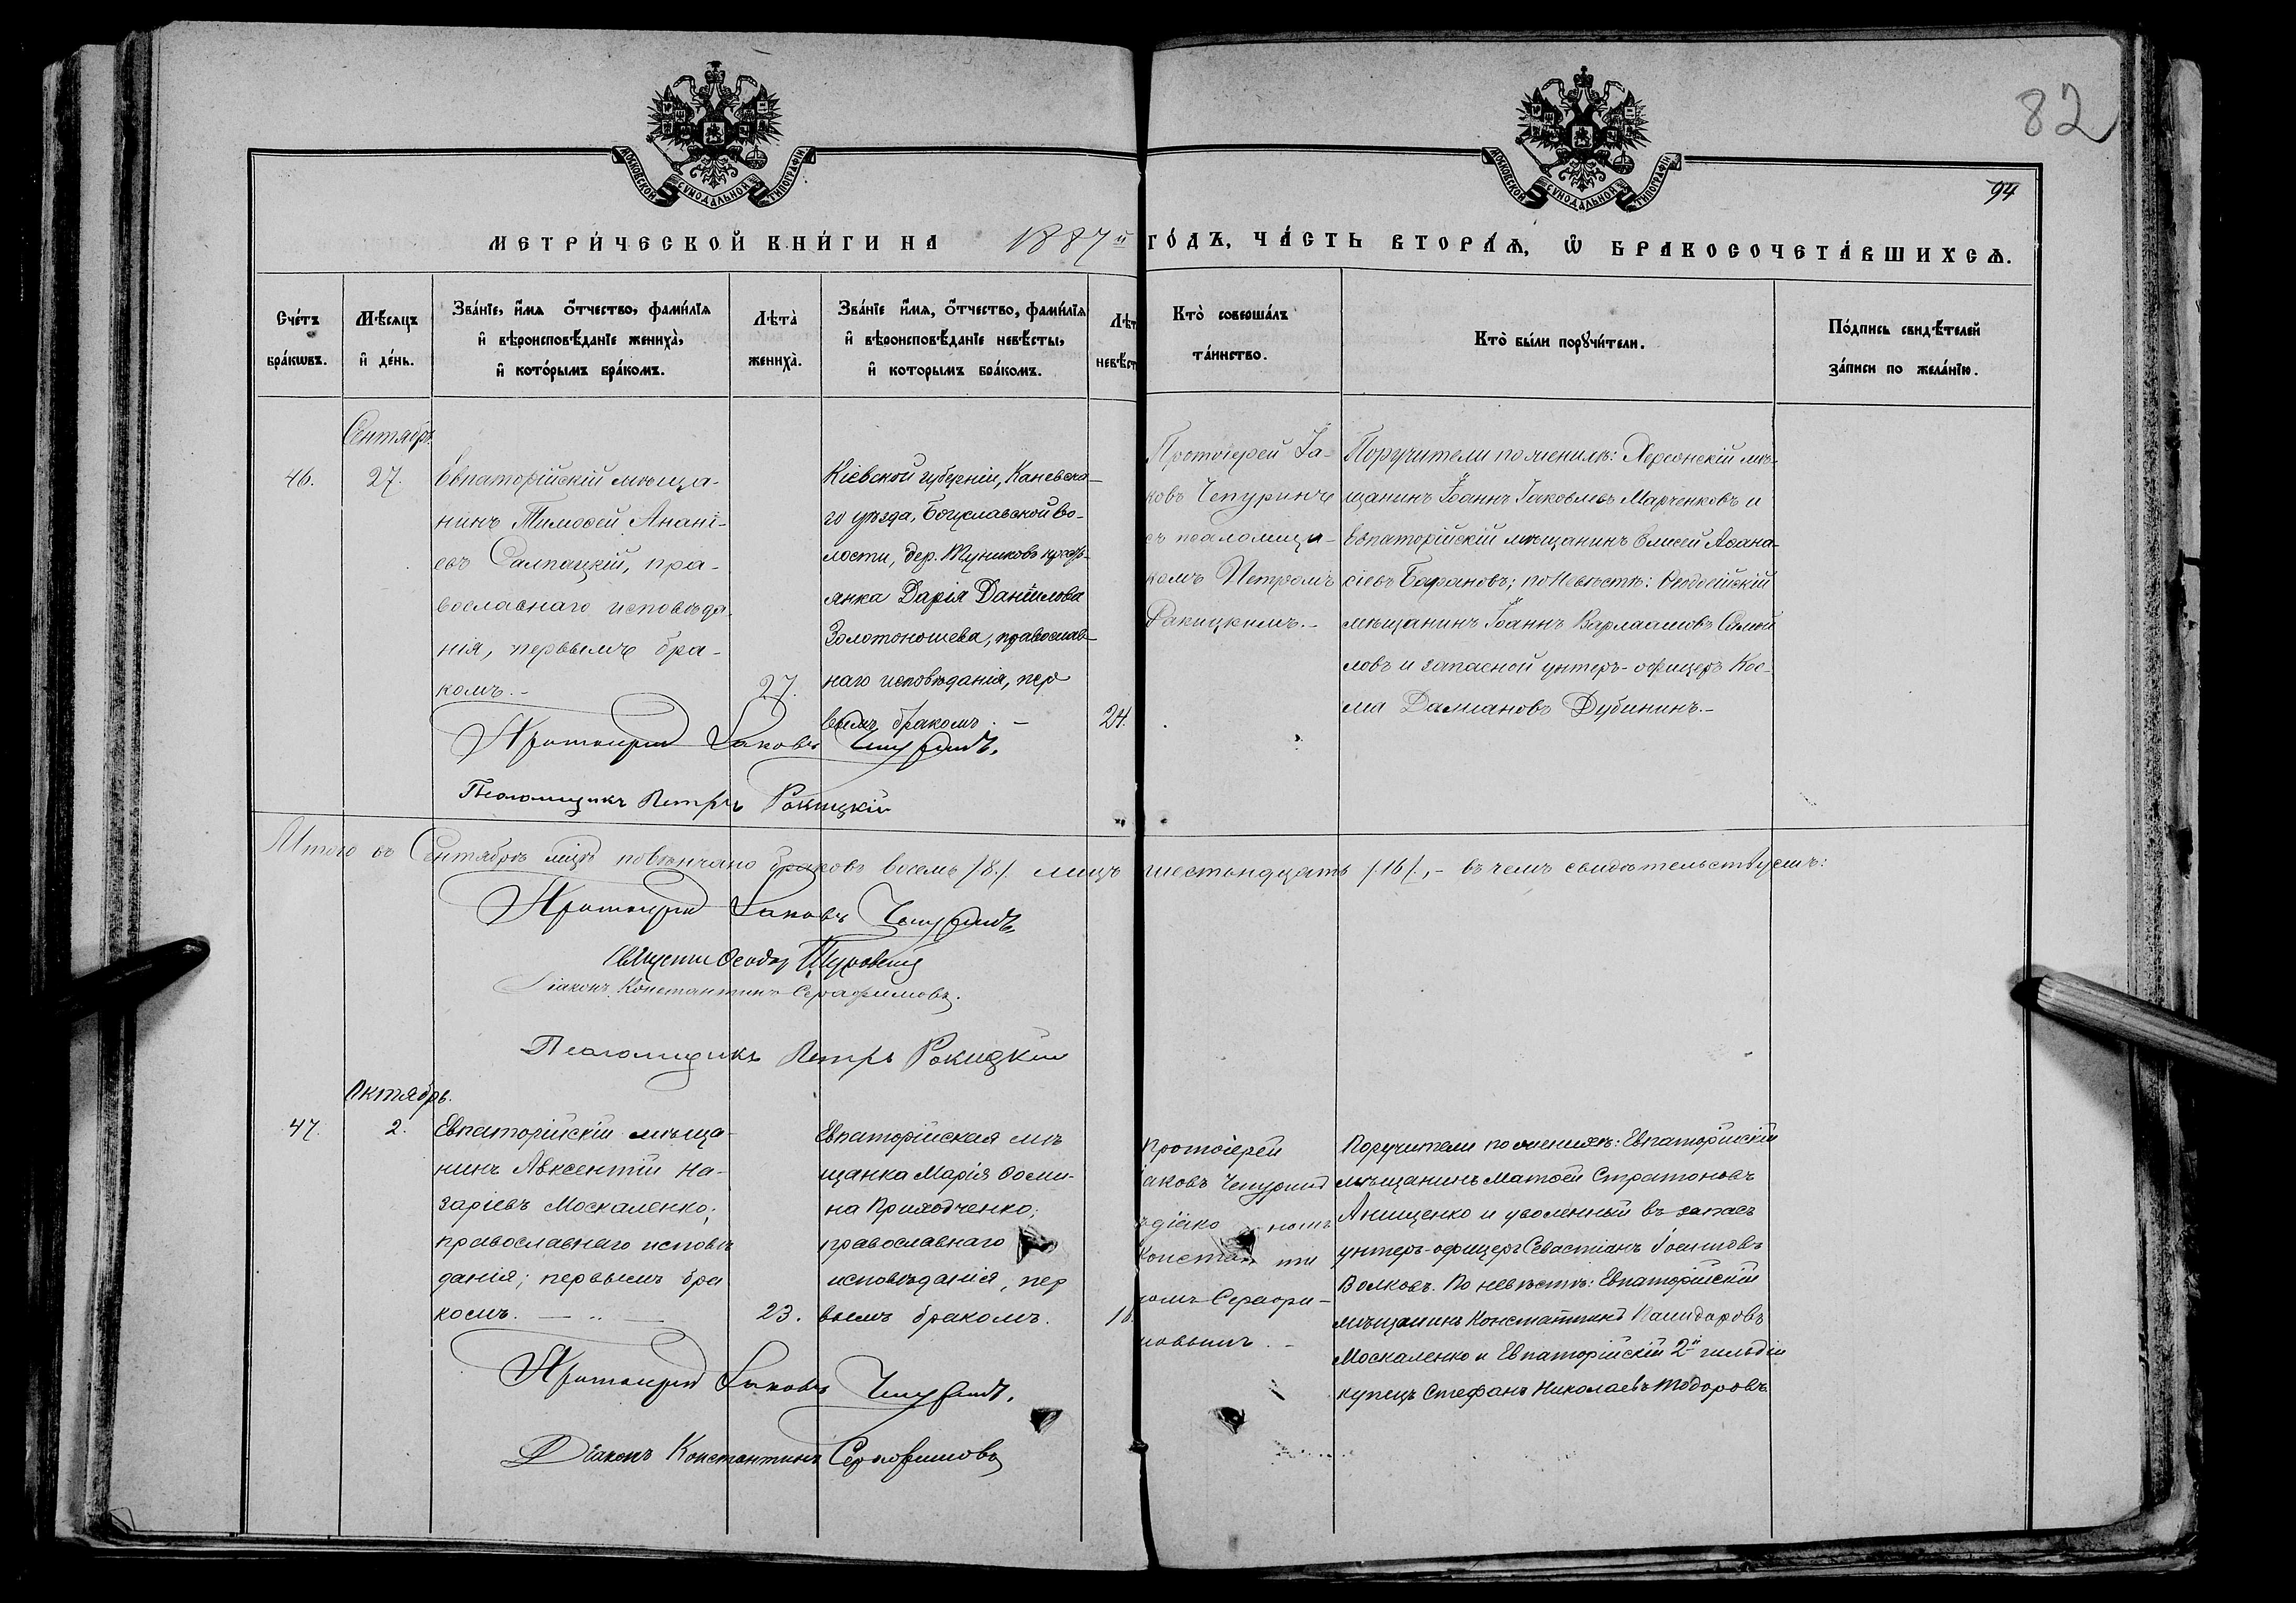 82
94
МОСКОВСКОЙ СѴНОДАЛЬНОЙ ТИПОГРАФІИ
МОСКОВСКОЙ СѴНОДАЛЬНОЙ ТИПОГРАФІИ
МЕТРИ́ЧЕСКОЙ КНИ́ГИ НА 1887й ГО́ДЪ, ЧА́СТЬ ВТОРА́Ѧ, Ѽ БРАКОСОЧЕТА́ВШИХСѦ.
Сче́тъ
бра́кѡвъ.
Мѣ́сѧцъ
и҆ де́нь.
Зва́нїе, и҆́мѧ ѻ҆́тчество, фами́лїѧ
и҆ вѣроисповѣ́данїе жениха̀,
и҆ кото́рымъ бра́комъ.
Лѣта̀
жениха̀.
Зва́нїе и҆́мѧ, ѻ҆́тчество, фами́лїѧ
и҆ вѣроисповѣ́данїе невѣ́сты,
и҆ которымъ бра́комъ.
Лѣт
невѣ́ст
Кто̀ совершáлъ
та́инство.
Кто̀ бы́ли порꙋчи́тели.
По́дпись свидѣ́телей
за́писи по жела́нїю.
Сентябрь
46.
27.
Евпаторійскій мѣща-
нинъ Тимоѳей Анані-
евъ Салпацкій, пра-
вославнаго исповѣда-
нія, первымъ бра-
комъ.-
27.
Кіевской губерніи, Каневска-
го уѣзда, Богуславской во-
лости, дер. Туниковъ кресть-
янка Дарія Даніилова
Золотоношева, православ-
наго исповѣданія, пер
вымъ бракомъ. -
24.
Протоіерей Іа-
ковъ Чепуринъ
съ псаломщи-
комъ Петромъ
Ракицкимъ.-
Поручители по женихѣ: Херсонскій мѣ-
щанинъ Іоаннъ Іаковлевъ Марченковъ и
Евпаторійскій мѣщанинъ Елисей Аѳана-
сіевъ Барановъ; по Невѣстѣ: Ѳеодосійскій
мѣщанинъ Іоаннъ Варлаамовъ Самой
ловъ и запасной унтеръ-офицеръ Кос-
ма Даміановъ Дубининъ.-
Протоіерей Іаковъ Чепуринъ.
Псаломщикъ Петръ Ракицкій
Итого въ Сентябрѣ мцѣ повѣнчано браковъ восемь /8./ лицъ шестнадцать /.16/.,- въ чемъ свидѣтельствуемъ:
Протоіерей Іаковъ Чепуринъ.
Ѳеодоръ
Діаконъ Константинъ Серафимовъ.
Псаломщикъ Петръ Ракицкій
Октябрь.
47.
2.
Евпаторійскій мѣща-
нинъ Авксентій На-
заріевъ Москаленко;
православнаго исповѣ
данія; первымъ бра
комъ. — .. —
23.
Евпаторійская мѣ
щанка Марія Ѳоми-
на Приходченко;
православнаго
исповѣданія, пер
вымъ бракомъ.
Протоіерей
Іаковъ Чепуринъ
Серафи-
мовымъ. -
Поручители по женихѣ: Евпаторійскій
мѣщанинъ Матѳей Стратоновъ
Анищенко и уволенный въ запасъ
унтеръ-офицеръ Севастіанъ Іосифовъ
Волковъ. По невѣстѣ: Евпаторійскій
мѣщанинъ Константинъ
Москаленко и Евпаторійскій 2й гильдіи
купецъ Стефанъ Николаевъ Тодоровъ
Протоіерей Іаковъ Чепуринъ.
Діаконъ Константинъ Серафимовъ